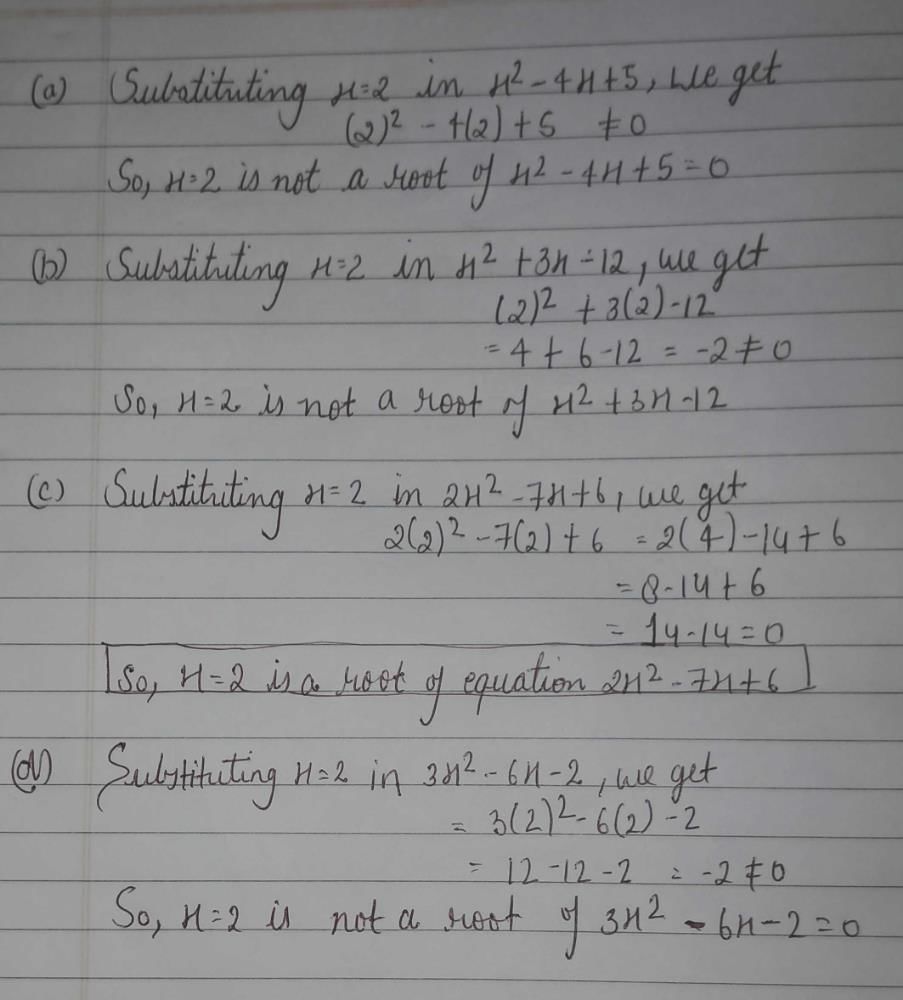 (a) Substituting x=2 in x² - 4x+5, we get
(2)² - 4(2) + 5 ≠0
So, x=2 is not a root of x² - 4x+5=0
(b) Substituting x=2 in x² +3x -12, we get
(2)² + 3(2)-12
= 4 + 6-12 = -2≠0
So, x=2 is not a root of x² +3x-12
(c) Substituting x=2 in 2x² -7x+6, we get
2(2)² -7(2) + 6 = 2(4)-14+6
= 8-14+6
= 14-14=0
So, x=2 is a root of equation 2x² - 7x+6
(d) Substituting x=2 in 3x² - 6x -2, we get
= 3(2)² - 6(2) -2
= 12 -12 -2 = -2≠0
So, x=2 is not a root of 3x² - 6x-2=0